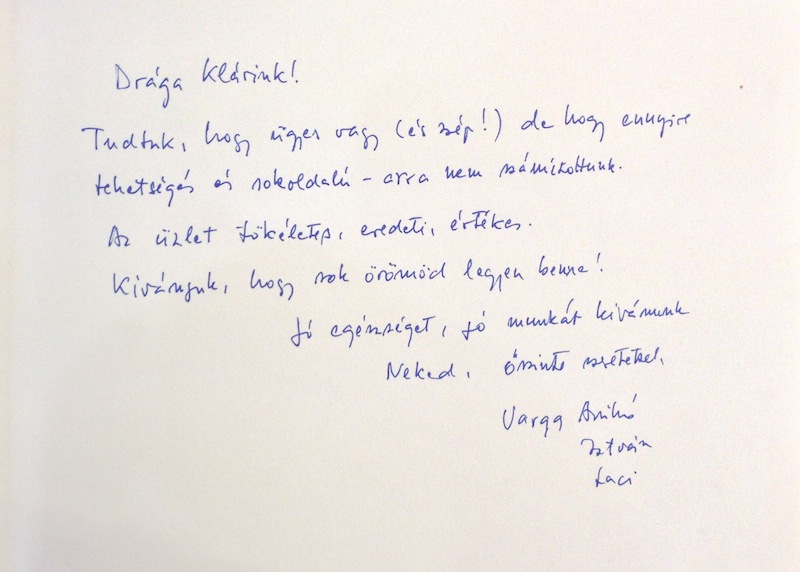 Drága Klárink!
Tudtuk, hogy ügyes vagy (és szép!) de hogy ennyire
tehetséges és sokoldalú – arra nem számítottunk.
Az üzlet tökéletes, eredeti, értékes.
Kívánjuk, hogy sok örömöd legyen benne!
Jó egészséget, jó munkát kívánunk
Neked, őszinte szeretettel,
Varga Anikó
István
Laci